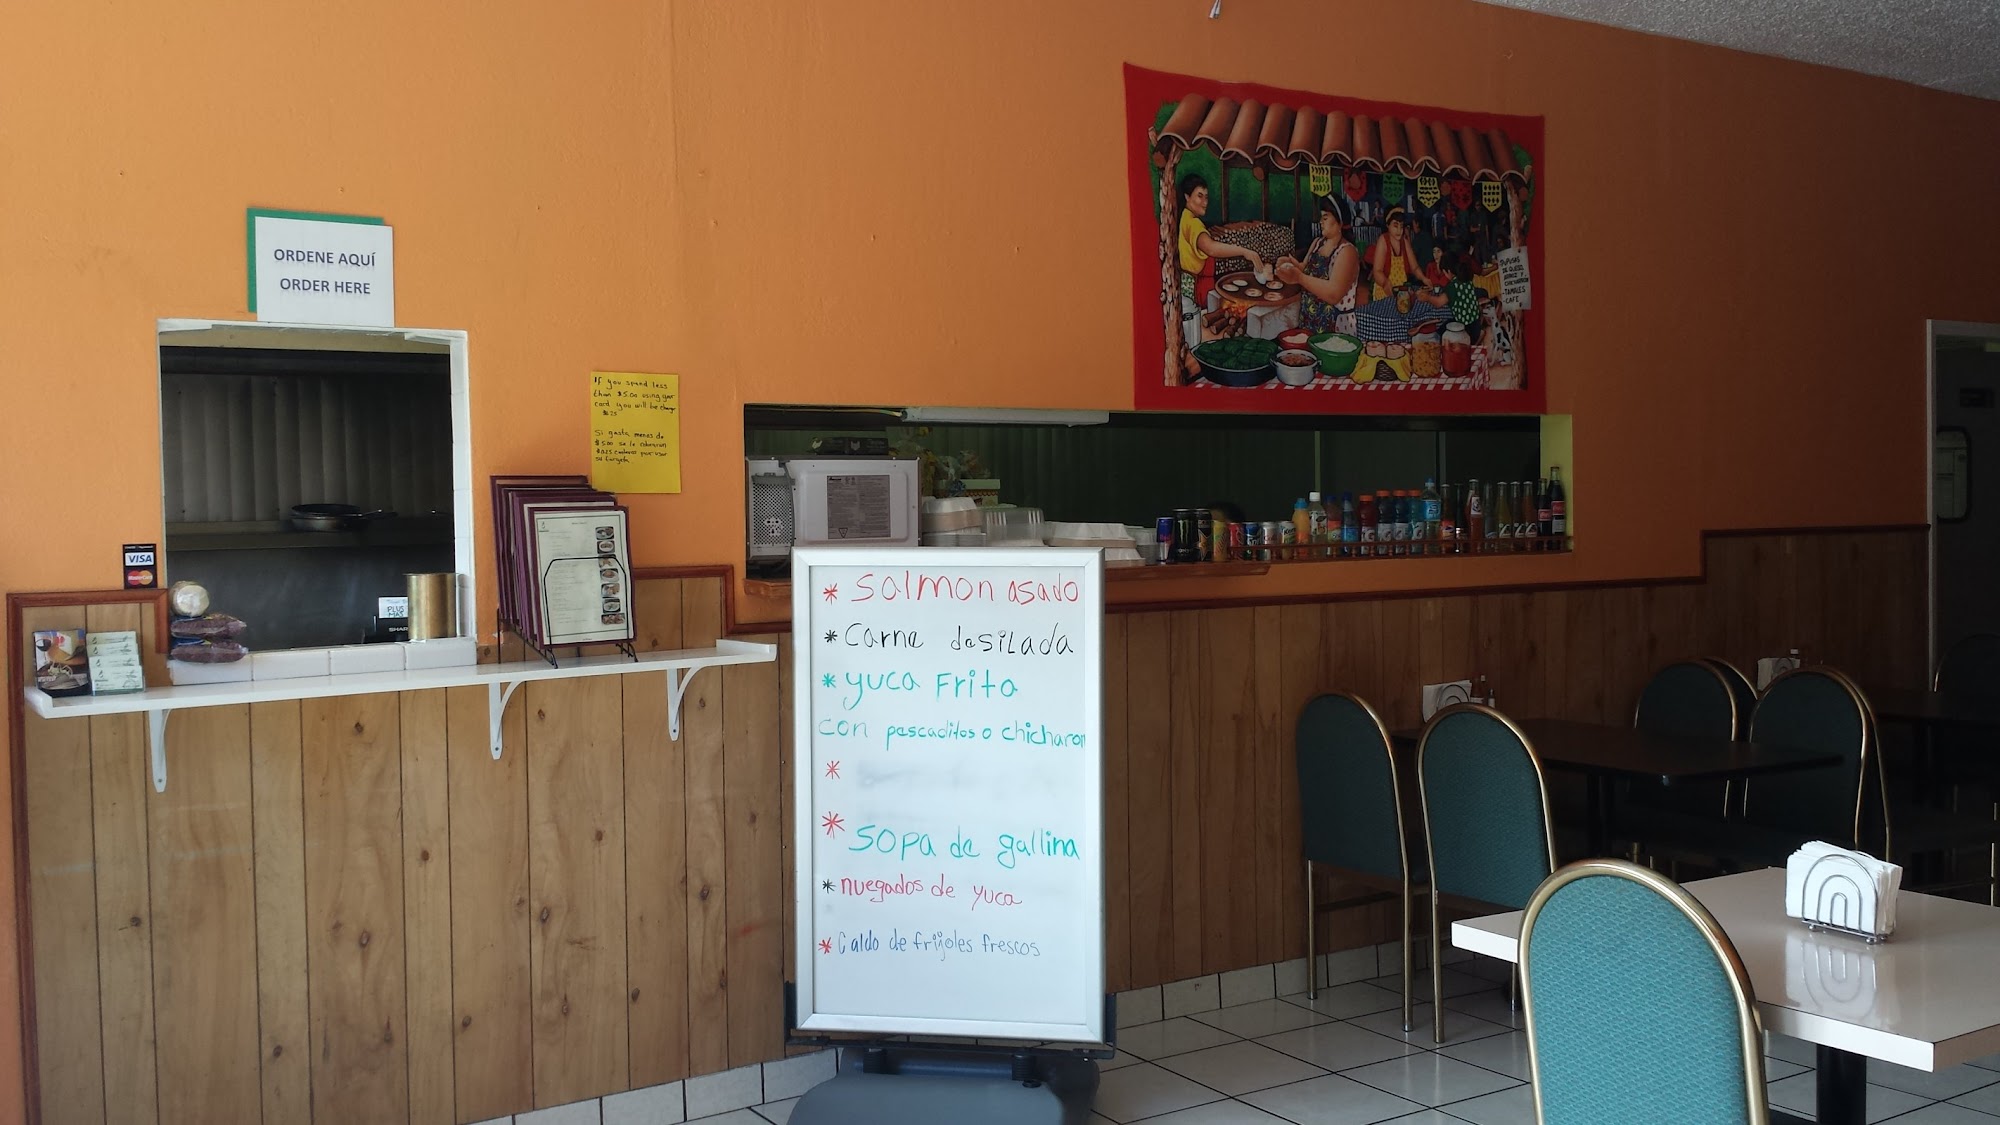 ORDENE AQUÍ
ORDER HERE
If you spend less
than $5.00 using your
card you will be charge
$.25
Si gasta menos de
$5.00 se le cobraran
$0.25 centavos por usar
su targeta
VISA
MasterCard
PLUS
MÁS
SHARP
PUPUSAS
DE QUESO,
ARROZ Y
CHICHARRON
-TAMALES
-CAFE
* Salmon asado
* Carne desilada
* yuca Frita
con pescaditos o chicharon
*
* SOPA de gallina
* nuegados de yuca
* Caldo de frijoles frescos